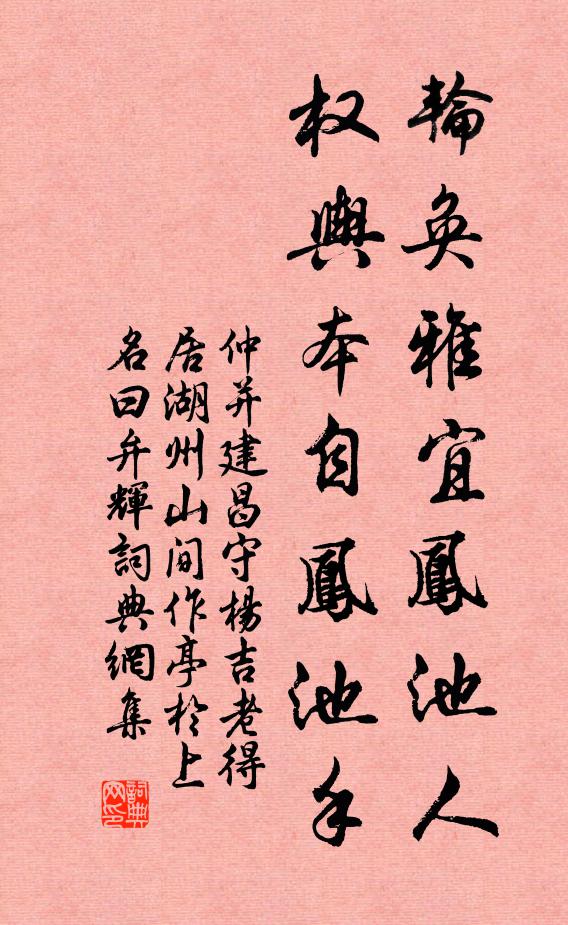 輪奐雅宜鳳池人
权輿本自鳳池手
仲并建昌守楊吉老得
居湖州山间作亭於上
名曰弁輝詞典網集
詞典网印